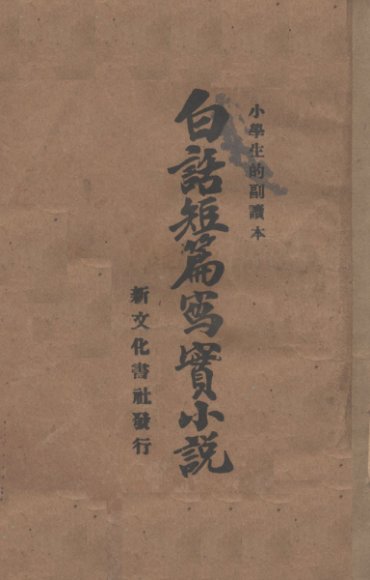 小學生的副讀本
白話短篇寫實小說
新文化書社發行